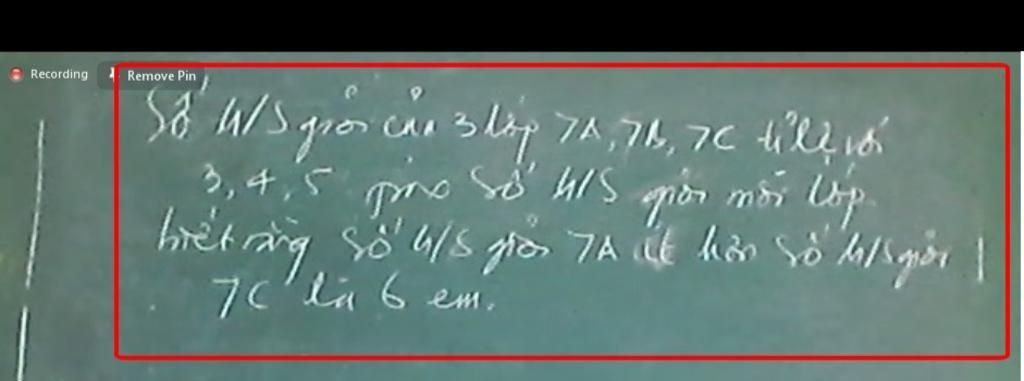 Recording
Remove Pin
Số h/s giỏi của 3 lớp 7A, 7B, 7C tỉ lệ với
3, 4, 5 số h/s giỏi mỗi lớp.
biết rằng số h/s giỏi 7A ít hơn số h/s giỏi
7C là 6 em.